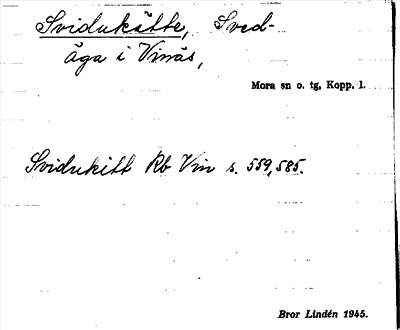 Svidukätte, Sved-
äga i Vinäs,
Mora sn o. tg, Kopp. l.
Svidukitt Rb Vin s. 559, 585.
Bror Lindén 1945.